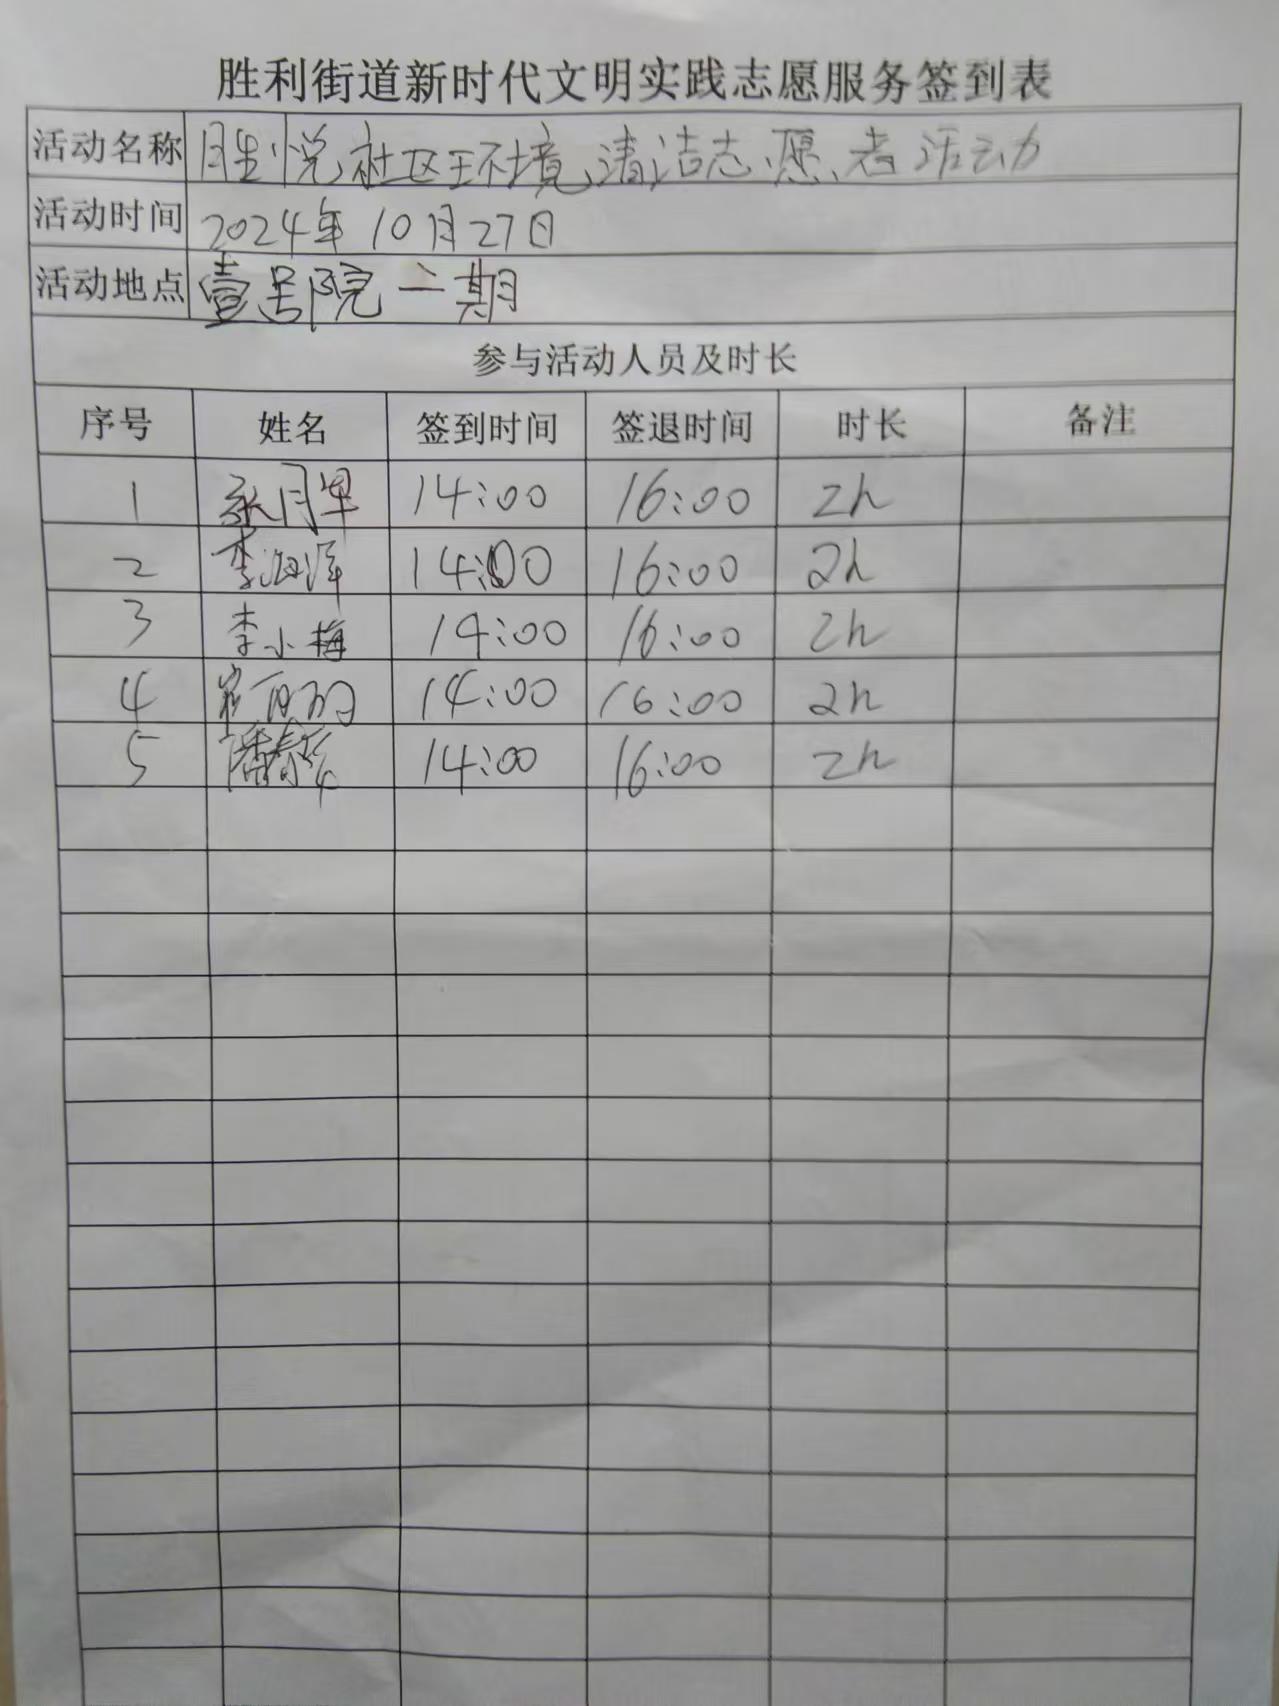 胜利街道新时代文明实践志愿服务签到表
活动名称 胜悦社区环境清洁志愿者活动
活动时间 2024年10月27日
活动地点 壹号院二期
参与活动人员及时长
序号 姓名 签到时间 签退时间 时长 备注
1 14:00 16:00 2h
2 李海洋 14:00 16:00 2h
3 李小梅 14:00 16:00 2h
4 14:00 16:00 2h
5 14:00 16:00 2h